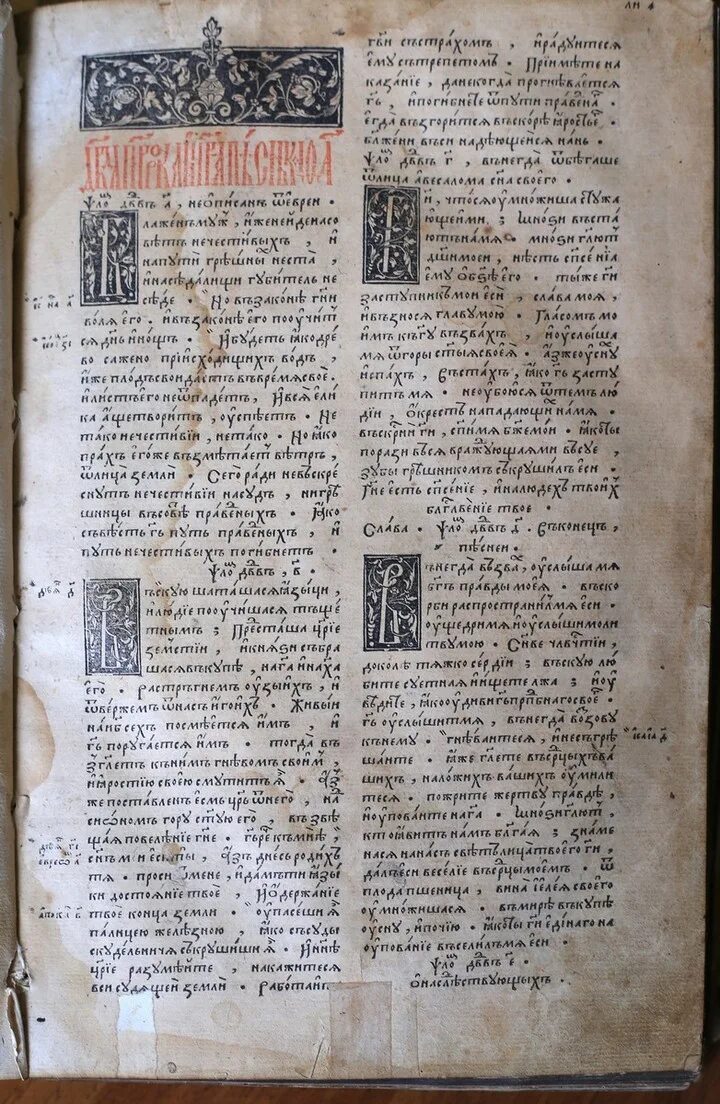 Ѱⷧ҇ѡ҇ дв҃дⷪ҇въ а҃ , неѡписанъ ѿеврен ·
лаженъ мꙋжъ , иже нейде насо
вѣтъ нечестивыхъ , и
напꙋти грѣшны нест̾а ,
инаседалищи гꙋбитель не
сѣде · Но въ законѣ гн҃и
волѧ его · ивъзаконѣ его поꙋчит
сѧ днь инощь · Ибꙋдетъ ꙗкодре
во сажено приисходищихъ водъ ,
иже плодъ свои дастъ въвремѧ своѐ ·
илистъ его неѿпадетъ , Ивсѧ ели
ка аще творитъ , оуспѣетъ · Не
тако нечестивїи , нетако · Но ꙗко
прахъ егоже възметаетъ вѣтръ ,
ѿлица земли · Сего ради невъскре
снꙋтъ нечестивїи насꙋдъ , нигрѣ
шницы въсовѣ праведныхъ · Ꙗко
съвѣсть гь пꙋть праведныхъ , и
пꙋть нечестивыхъ погибнетъ ·
Ѱⷧ҇ѡ҇ дв҃дⷪ҇въ , в҃ ·
ъскꙋю шаташасѧ ꙗзыци ,
илюдїе поꙋчишасѧ тъще
тнымъ ; Предсташа цр҃їе
земстїи , икнѧѕи събра
шасѧ въкꙋпѣ , нага инаха
его · растръгнем оузы ихъ , и
ѿвержемъ ѿнасъ иго ихъ · Живыи
нанб҃сехъ посмѣетсѧ имъ , и
гь порꙋгаетсѧ имъ · тогда въ
зг҃летъ къ нимъ гнѣвомъ своим ,
иꙗростїю своею смꙋтитъ ѧ · Аз
же поставленъ есмь цр҃ь ѿнего , на
сиѡномъ горꙋ ст҃ꙋю его , възвѣ
щаѧ повелѣнїе гн҃е · гь рече къмнѣ
сн҃ъ мои еси ты , азъ днесь родихъ
тѧ · проси ѿмене , идамъ ти ꙗзы
ки достоѧнїе твое , иѡдержанїе
твое конца земли · оупасеши ѧ
палицею железною , ꙗко съсꙋды
скꙋделничѧ съкрꙋшиши ѧ · Инн҃ѣ
цр҃їе разꙋмѣите , накажитесѧ
вси сꙋдѧщеи земли · Работаите
гв҃и състрахомъ , ирадꙋитесѧ
емꙋ сътрепетомъ · Прїимѣте на
казанїе , данекогда прогнѣваетсѧ
гь , ипогибнете ѿпꙋти праведна ·
егда възгоритсѧ въскорѣ ꙗрость его ·
бл҃жени вси надѣющеисѧ нань ·
Ѱⷧ҇ѡ҇ дв҃дⷪ҇въ г҃ , вънегда ѿбѣгаше
ѿлица авесалома сн҃а своего ·
и , чтосѧ оумножиша стꙋжа
ющеими ; мноѕи въста
ютъ намѧ · мноѕи гл҃ютъ
дш҃и моеи , нѣсть сп҃сенїа
емꙋ о бз҃ѣ его · ты же ги
застꙋпникъ мои еси , слава моѧ ,
ивъзносѧ главꙋ мою · Гласомъ мо
имъ къ гꙋ възвахъ , иоуслыша
мѧ ѿгоры ст҃ыѧ своеѧ · аз же оуснꙋ
испахъ , въстахъ , ꙗко гь застꙋ
питъ мѧ · неоубоюсѧ ѿтемъ лю
дїи , окрестъ нападающихъ намѧ ·
въскрн҃и ги , спс҃и мѧ бж҃е мои · ꙗко ты
порази всѧ враждꙋющаѧ ми въсꙋе ,
зꙋбы грѣшникомъ съкрꙋшилъ еси ·
Гн҃е есть сп҃сенїе , иналюдехъ твоихъ
блгⷭ҇венїе твое ·
Слава · Ѱⷧ҇ѡ҇ дв҃дⷪ҇въ д҃ · въконецъ ,
пѣснеи ·
ънегда възвахъ , оуслыша мѧ
бг҃ъ правды моеѧ · въско
рби распространилъ мѧ еси ·
оущедри мѧ иоуслыши моли
твꙋ мою · Сн҃ве члвчⷭ҇тїи ,
доколѣ тѧжко сердїи ; въскꙋю лю
бите сꙋетнаѧ иищете лжа ; иоу
вѣдите , ꙗко оудиви гь прпⷣбнаго своего ·
гь оуслышит мѧ , вънегда възовꙋ
къ немꙋ · гнѣваитесѧ , инесъгрѣ
шаите · ꙗже гл҃ете въсрцⷣыхъ ва
шихъ , наложихъ вашихъ оумили
тесѧ · пожрите жертвꙋ правдѣ ,
иоуповаите нага · мноѕи гл҃ютъ ,
кто ꙗвитъ намъ бл҃гаѧ ; знаме
насѧ нанасъ свѣтъ лица твоего ги ,
далъ еси веселїе въсрцⷣы моемъ · ѿ
плода пшеница , вина иелеѧ своего
оумножишасѧ · въмирѣ въкꙋпѣ
оуснꙋ , ипочїю · ꙗко ты ги единаго на
оупованїе въселилъ мѧ еси ·
Ѱⷧ҇ѡ҇ дв҃дⷪ҇въ е҃ ·
онаслѣствꙋющихъ ·